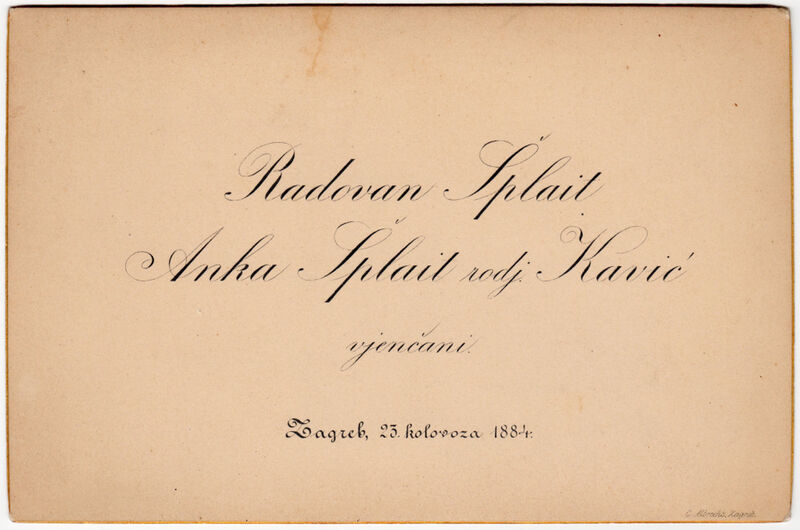 Radovan Šplait
Anka Šplait rodj. Kavić
vjenčani.
Zagreb, 23. kolovoza 1884.
C. Albrecht, Zagreb.